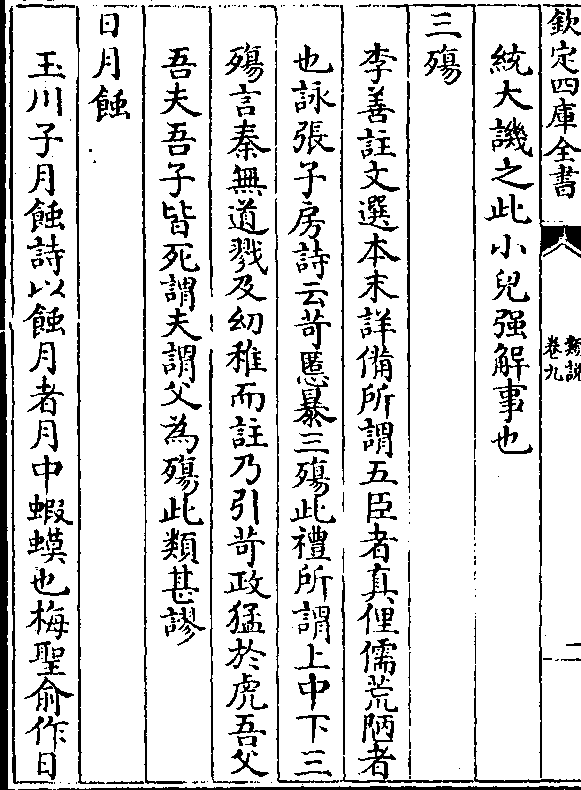 欽定四庫全書
類說
卷九
二
統大譏之此小兒强解事也
三殤
李善註文選本末詳備所謂五臣者真俚儒荒陋者
也詠張子房詩云苛慝暴三殤此禮所謂上中下三
殤言秦無道戮及幼稚而註乃引苛政猛於虎吾父
吾夫吾子皆死謂夫謂父為殤此類甚謬
日月蝕
玉川子月蝕詩以蝕月者月中蝦蟆也梅聖俞作日